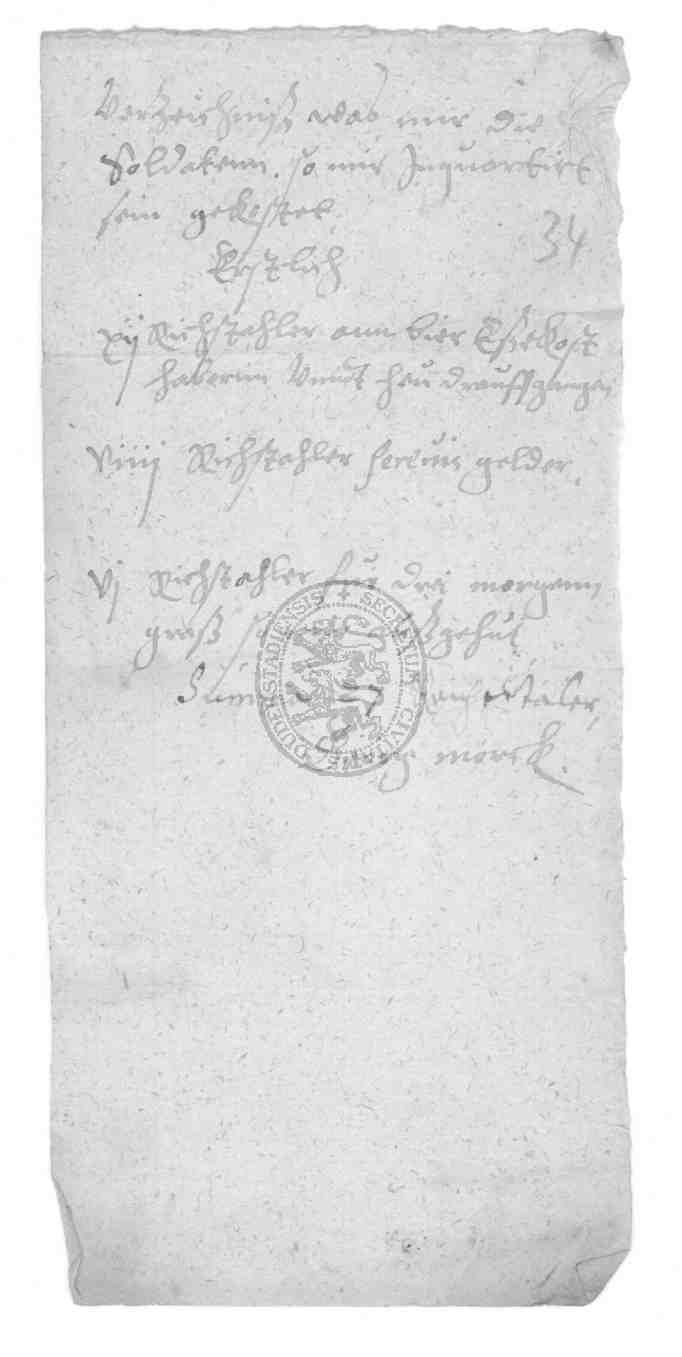 Vertzeichniß was mir die
Soldatenn. so mir Inquartirt
sein gekostet.
34
Erstlich
xij Richstahler ann bier Eßekost
haberen Vnndt heu drauffgangen
viiij Richstahler servis gelder.
vj Richstahler für drei morgenn
graß
Taler,
morck.
SECRETUM CIVITATIS DUDERSTADIENSIS